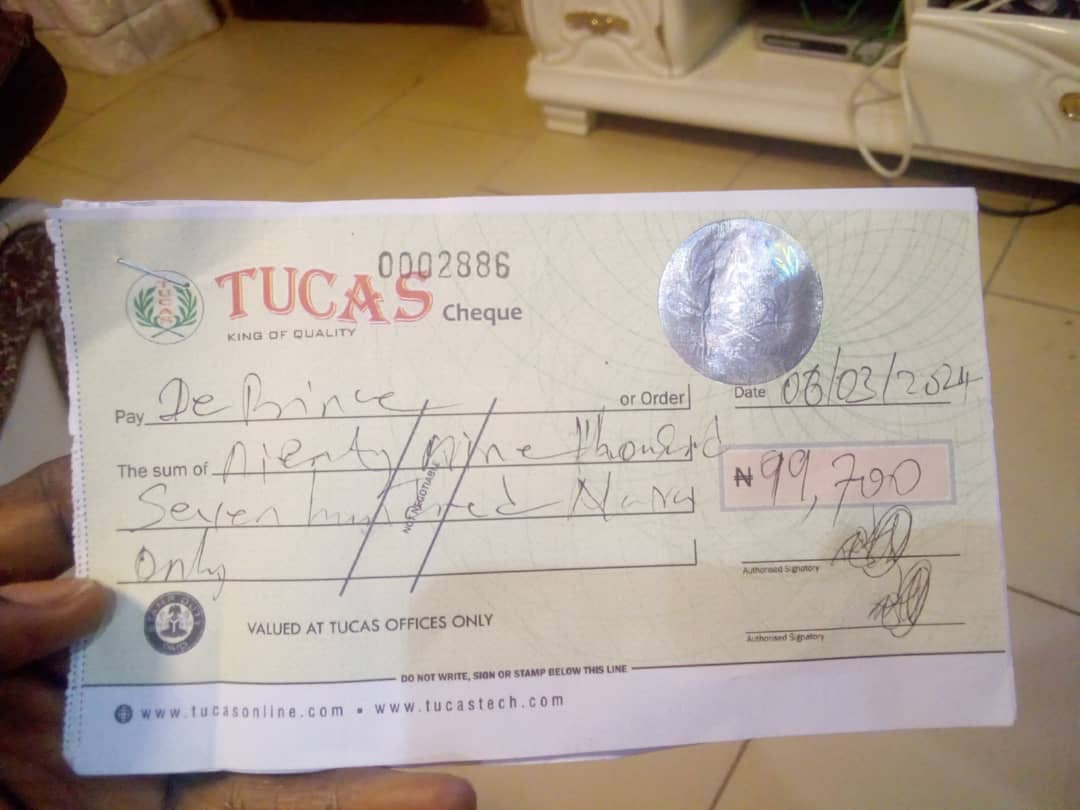 0002886
TUCAS Cheque
KING OF QUALITY
TUCAS
Pay De Prince or Order
Date 06/03/2024
The sum of Ninety Nine thousand
₦ 99,700
Seven hundred Naira
NOT NEGOTIABLE
Only
Authorised Signatory
Authorised Signatory
VALUED AT TUCAS OFFICES ONLY
DO NOT WRITE, SIGN OR STAMP BELOW THIS LINE
www.tucasonline.com • www.tucastech.com